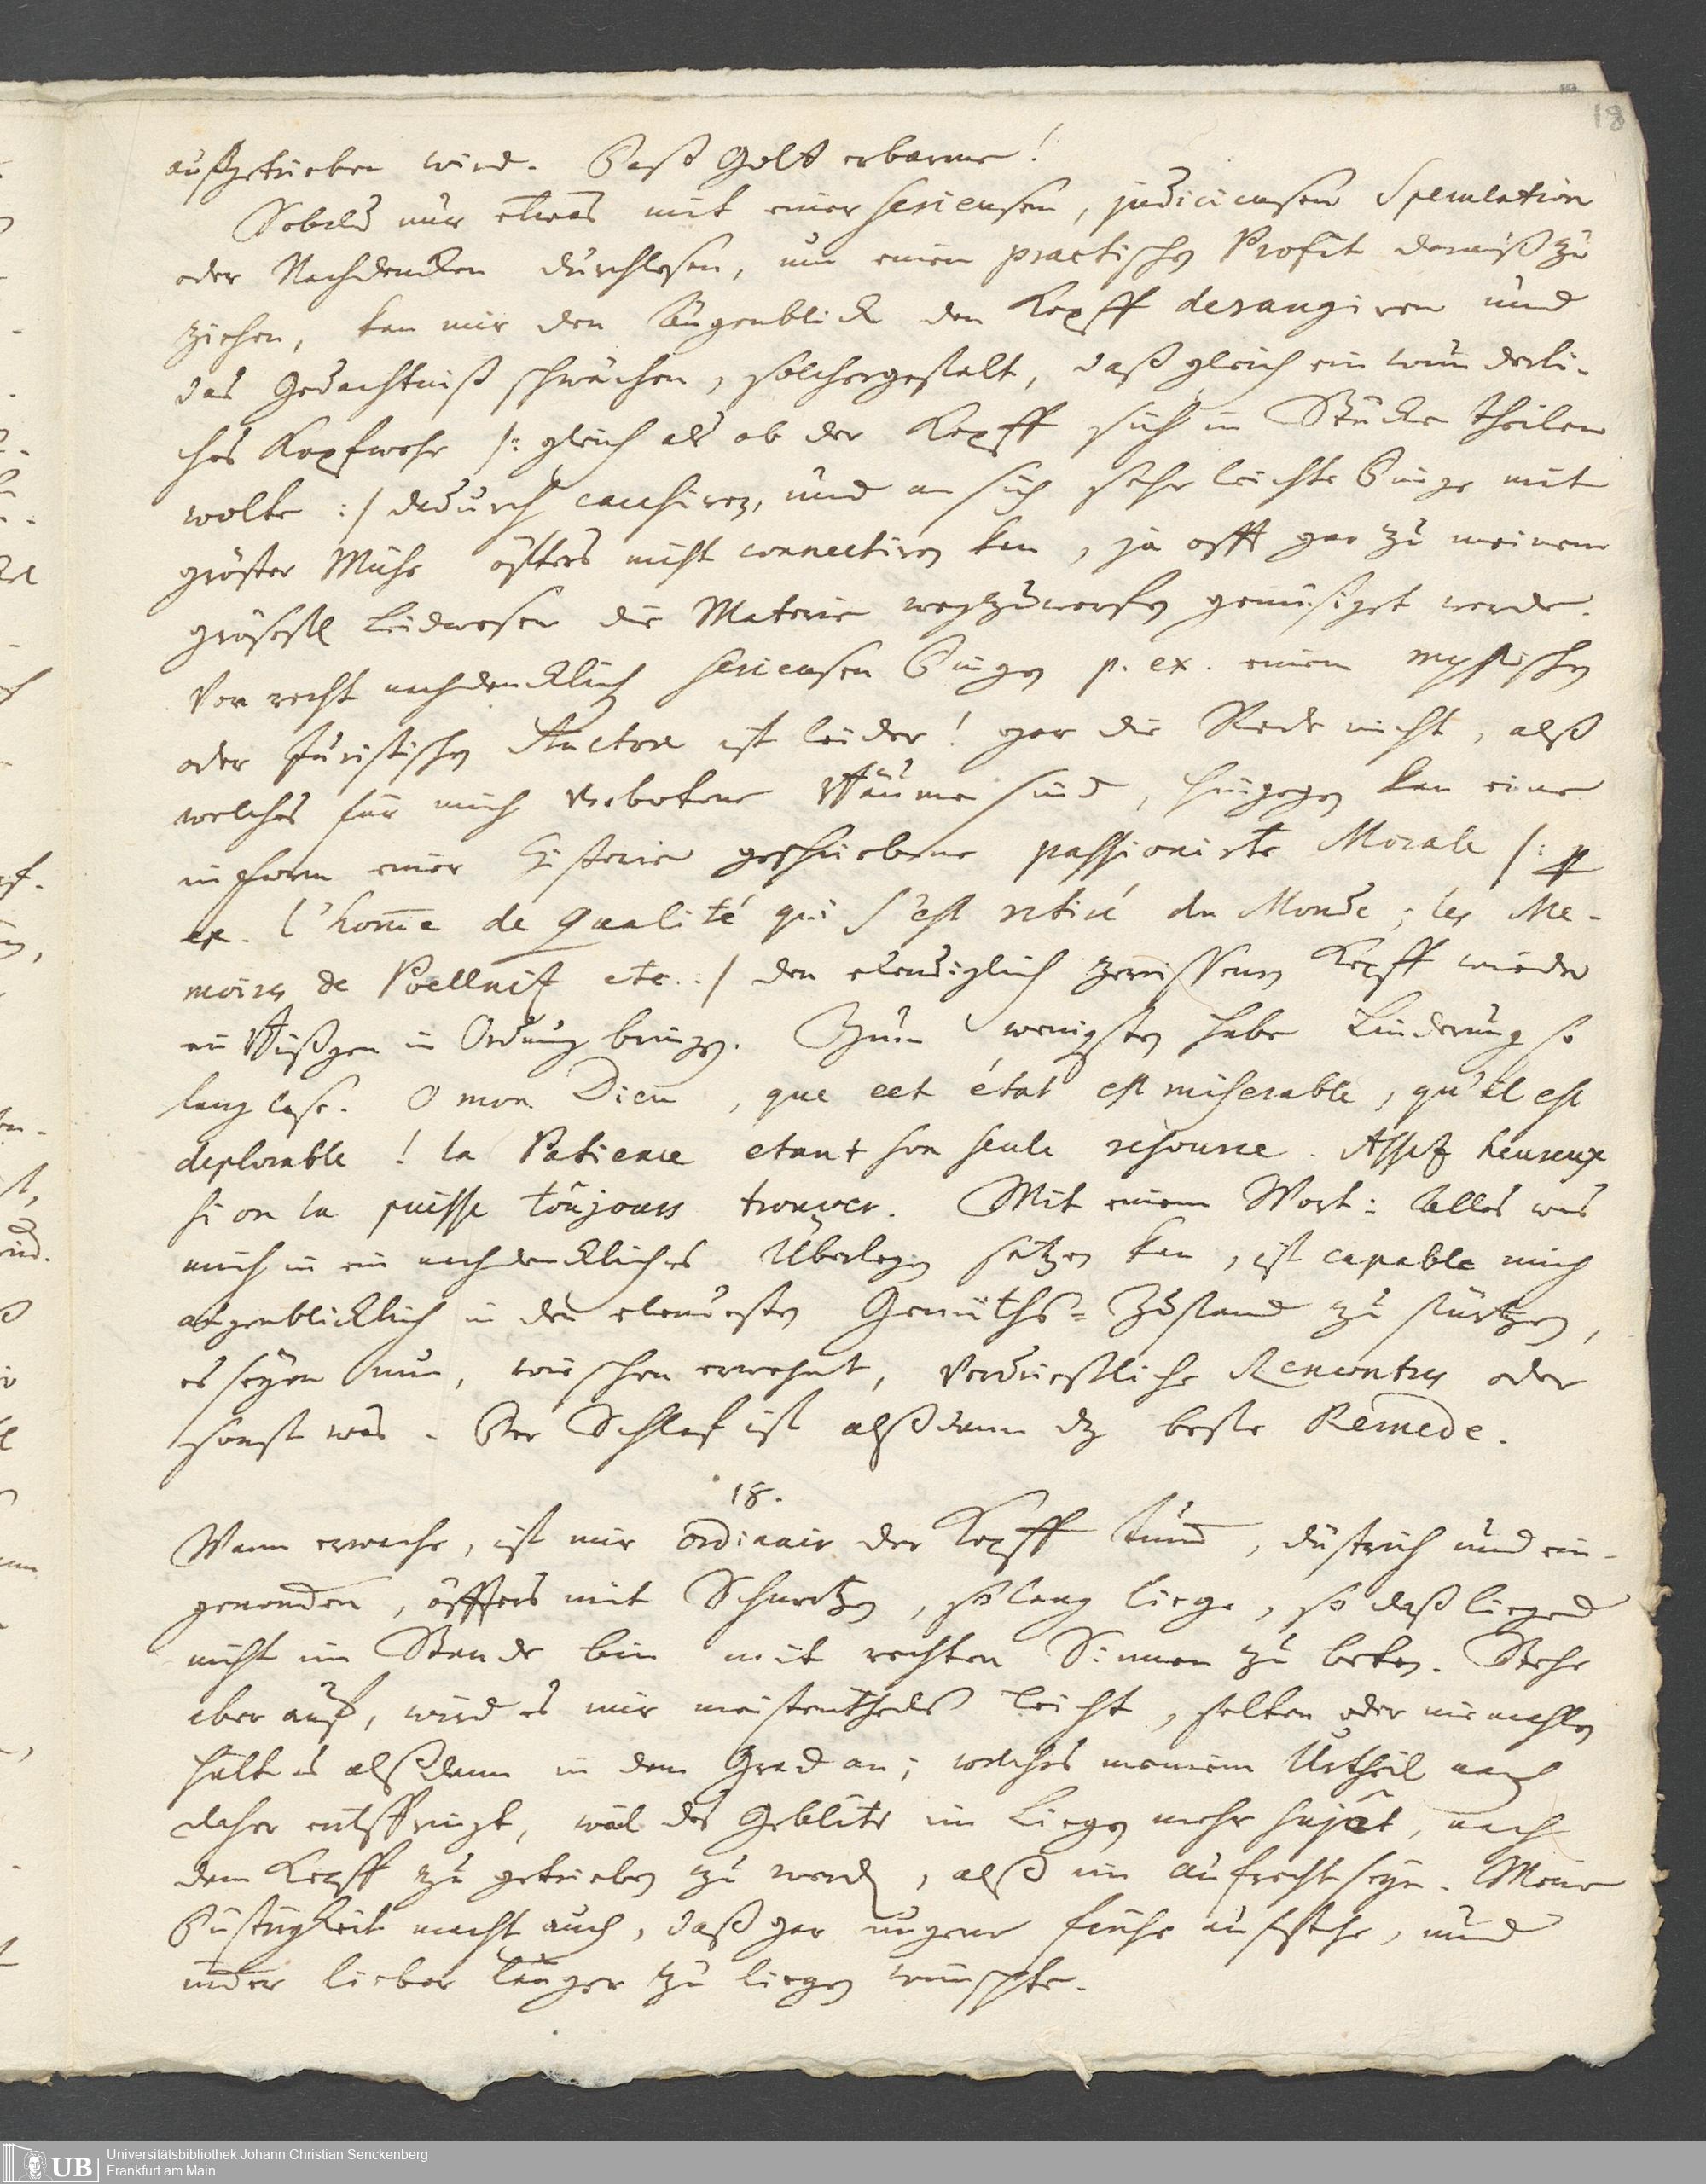 18
außgetrieben wird. Daß Gott erbarme!
Sobald nur etwas mit einer serieusen, judicieusen Speculation
oder Nachdencken durchlesen, um einen practischen Profit darauß zu
ziehen, kan mir den Augenblick den Kopff derangiren und
das Gedächtniß schwächen, solchergestalt, daß gleich ein wunderli-
ches Kopfwehe /: gleich als ob der Kopff sich in Stücke theilen
wolte :/ dadurch causiren, und an sich sehr leichte Dinge mit
gröster Mühe öfters nicht connectiren kan, ja offt gar zu meinem
grösestℓ Leidwesen die Materie wegzuwerfen genüsiget werde.
Von recht nachdencklich serieusen Dingen p. ex. einem mystischen
oder Juristischen Auctore ist leider! gar die Rede nicht, alß
welches für mich verbotene Bäume sind, hingegen kan eine
in Form einer Historie geschriebene passionirte Morale /: p
ex. l'home de qualité qui s'est retiré du Monde; les Me-
moires de Poellnitz etc. :/ den elendiglich zerrissenen Kopff wieder
ein bißgen in Ordnung bringen. Zum wenigsten habe Linderung so
lang lese. O mon Dieu, que cet état est miserable, qu'il est
deplorable! la Patience etant son seule resource. Assez heureux
si on la puisse toûjours trouver. Mit einem Wort: Alles was
mich in ein nachdenckliches Überlegen setzen kan, ist capable mich
augenblicklich in den elendesten Gemüths=Zustand zu stürtzen,
es seyen nun, wie schon erwehnt, verdrießliche Rencontres oder
sonst was. Der Schlaf ist alßdann dz beste Remede.
18.
Wann erwache, ist mir ordinair der Kopff dum, düstrich und ein-
genommen, öffters mit Schmertzen, so lang liege, so daß liegend
nicht im Stande bin mit rechten Sinnen zu beten. Stehe
aber auf, wird es mir meistentheils leicht, selten oder niemahlen
hält es alßdann in dem Grad an; welches meinem Urtheil nach
daher entspringt, weil das Geblüte im Liegen mehr sujet, nach
dem Kopff zu getrieben zu werden, alß im aufrecht seyn. Meine
Düstrigkeit macht auch, daß gar ungerne frühe aufstehe, und
immer lieber länger zu liegen wünschte.
UB
Universitätsbibliothek Johann Christian Senckenberg
Frankfurt am Main